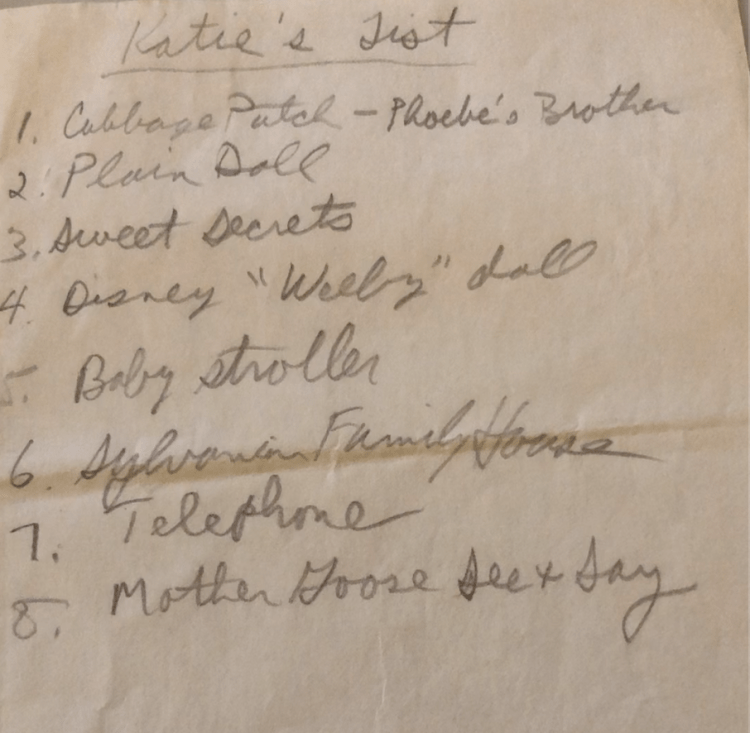 Katie's List
1. Cabbage Patch - Phoebe's Brother
2. Plain Doll
3. Sweet Secrets
4. Disney "Weeby" doll
5. Baby stroller
6. Sylvanian Family House
7. Telephone
8. Mother Goose See + Say